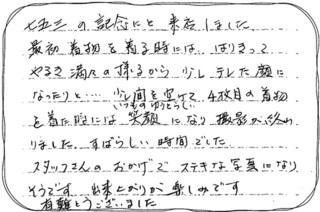 七五三の記念にと来店しました
最初着物を着る時には、はりきって
やるき満々の様子から少してれた顔に
なったりと… 少し間を空けて 4枚目の着物
いつものゆうとうしい
を着た時には笑顔になり撮影が終わ
りました。すばらしい時間でした
スタッフさんのおかげでステキな写真になり
そうです 出来上がりが楽しみです
有難とうございました